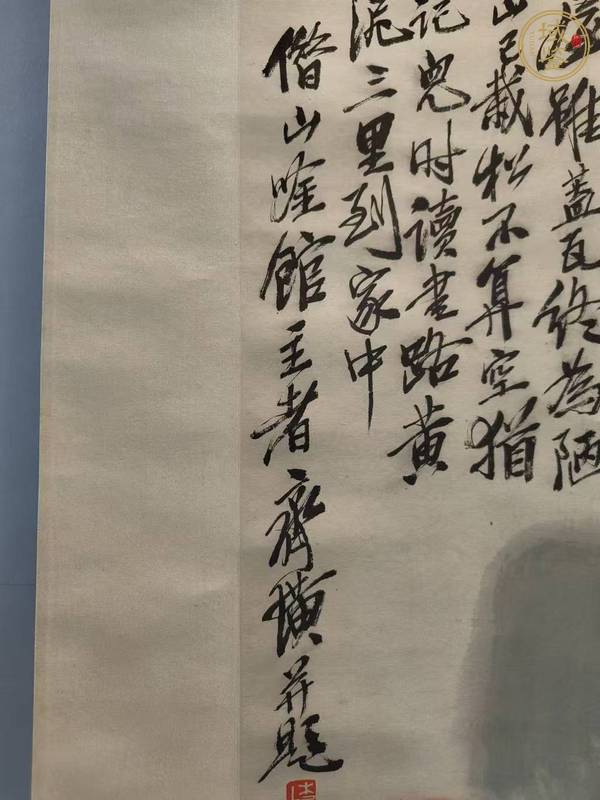 雖蓋瓦終為陋
山已栽松不算空猶
記兒時讀書路黄
泥三里到家中
借山唫館主者齊璜并題